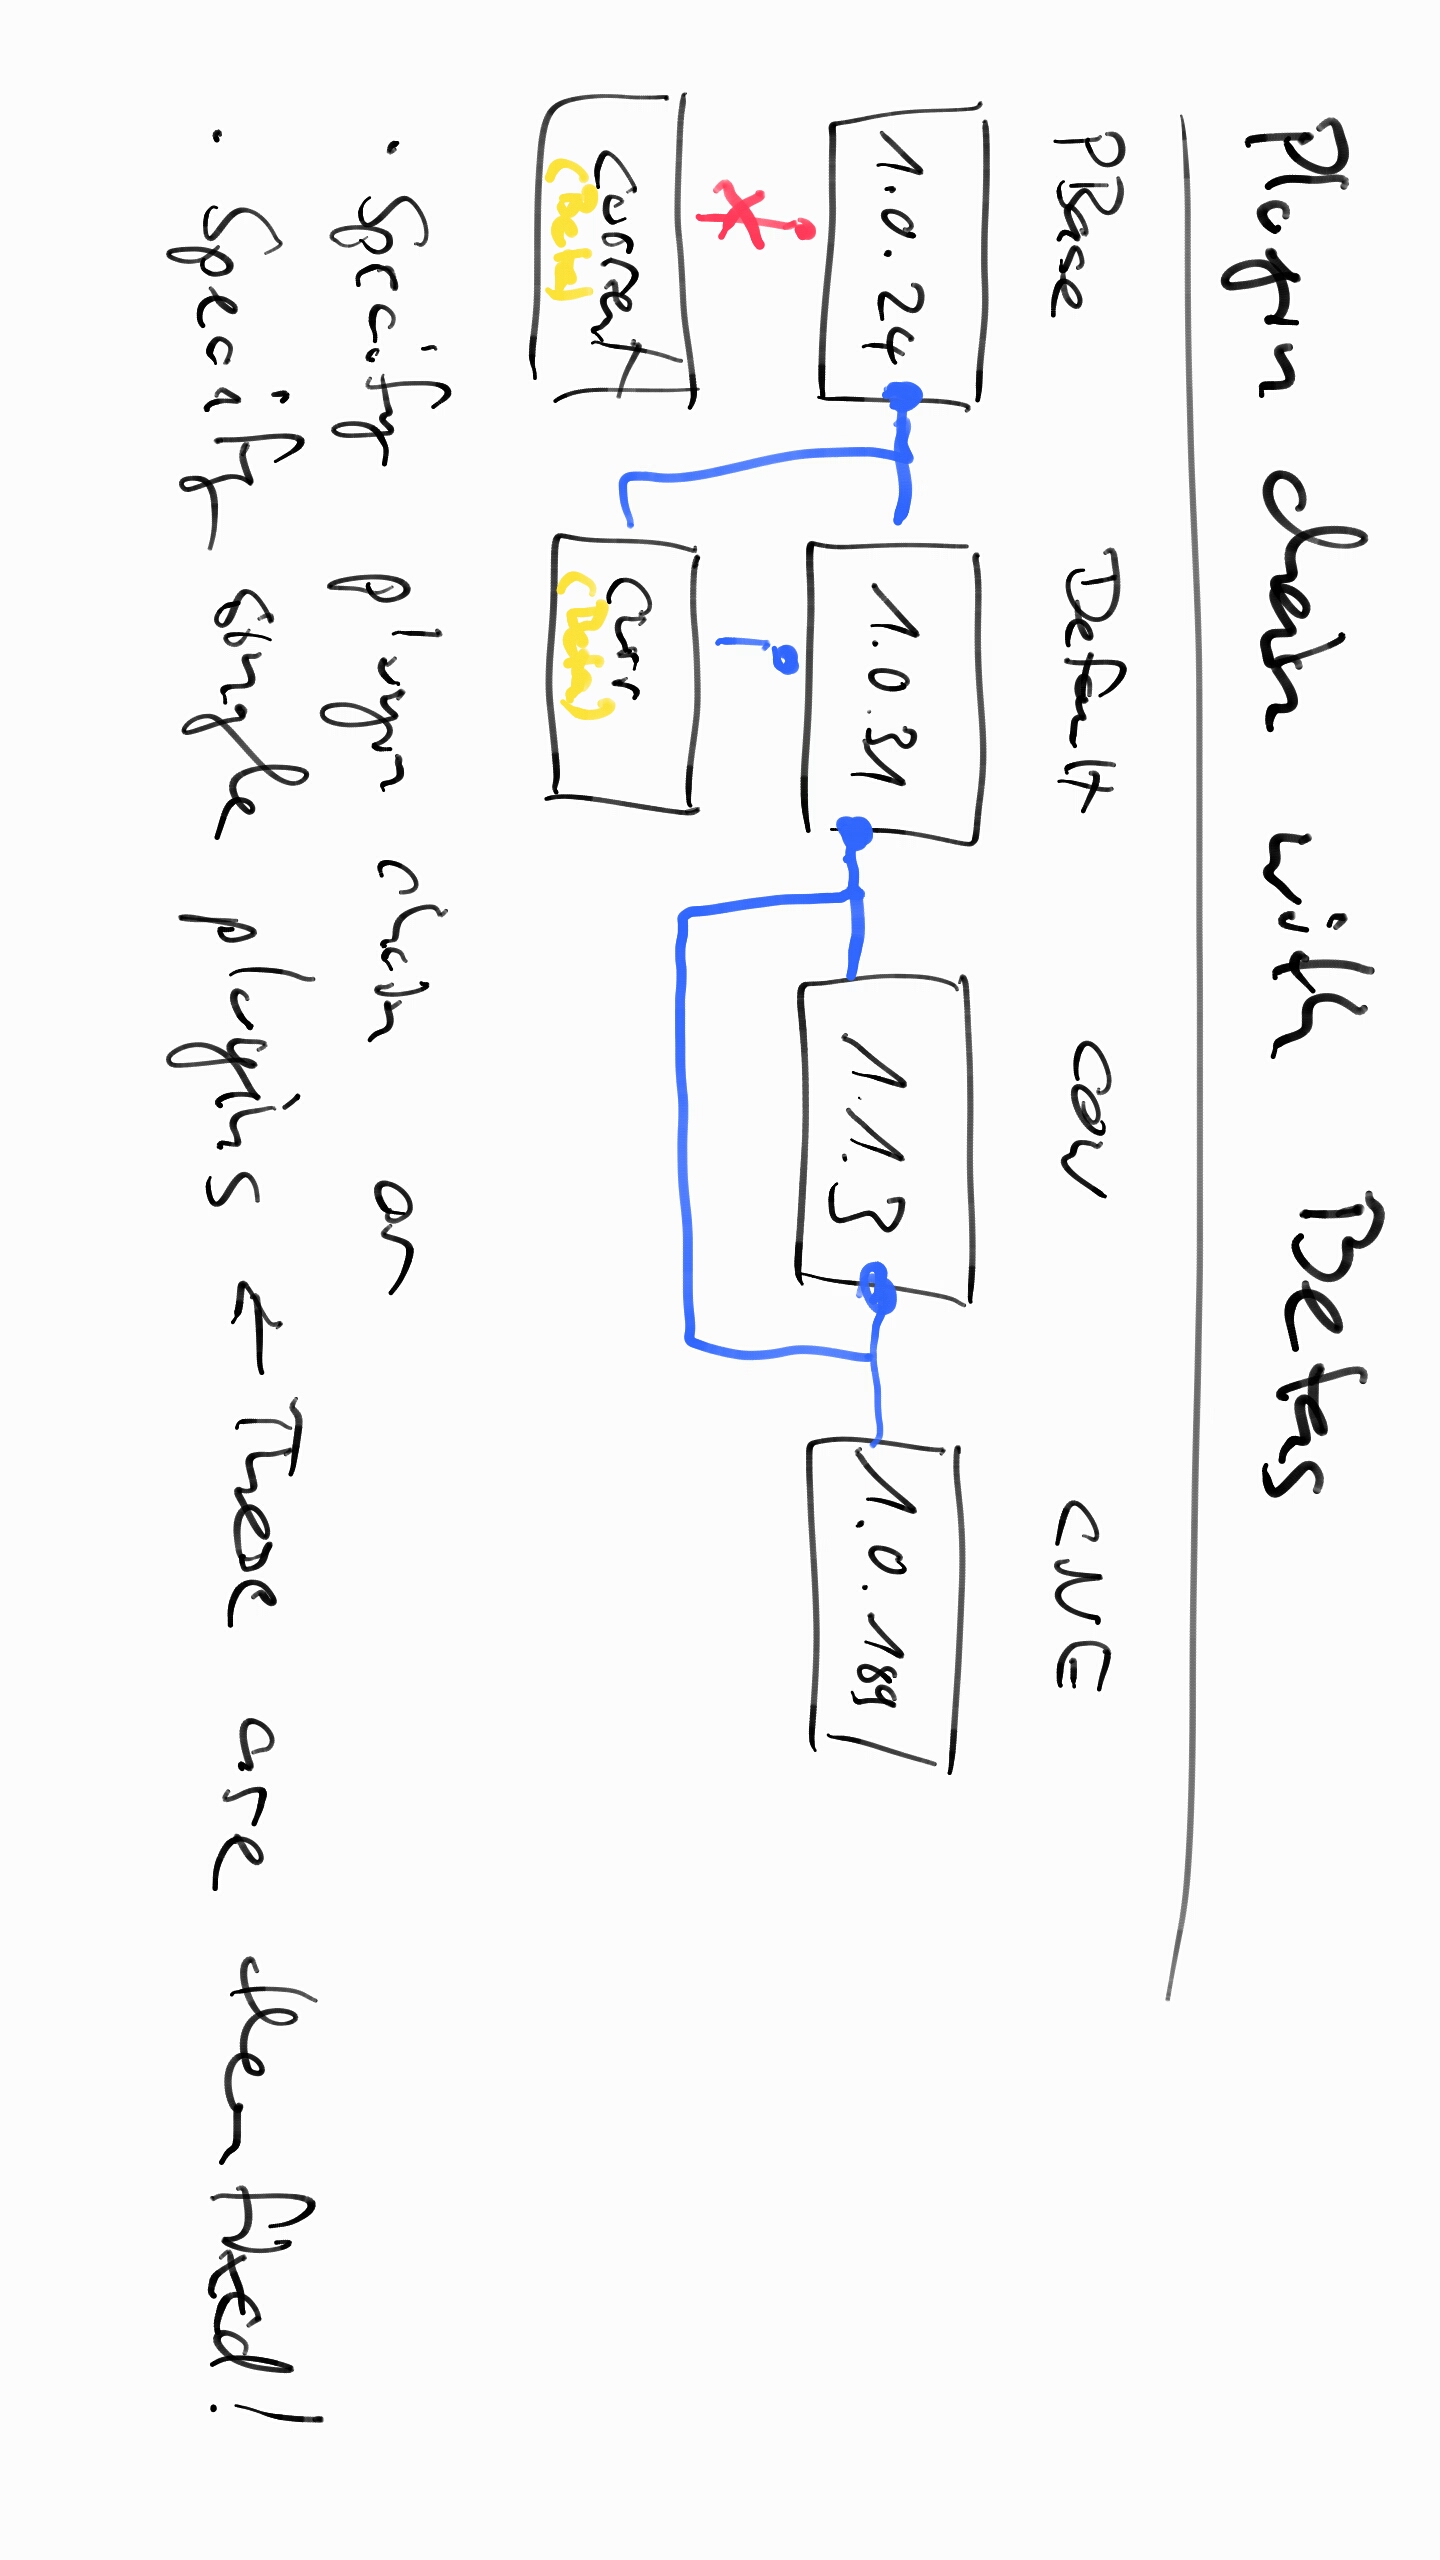 Plugin chain with Betas
PBase Default Cow CNE
1.0.24 1.0.31 1.1.3 1.0.189
Current Curr
(Beta) (Beta)
• Specify plugin chain or
• Specify single plugins ← These are then fixed!